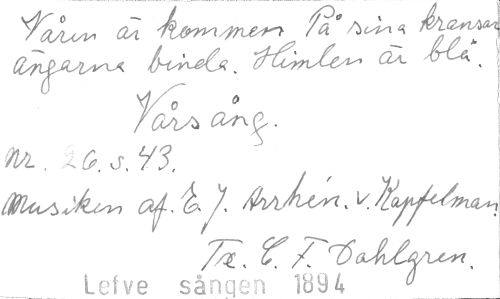 Våren är kommen På sina kransar
ängarna binda. Himlen är blå.
Vårsång.
nr. 26. s. 43.
Musiken af. E. J. Arrhén. v. Kapfelman.
Tx. C. F. Dahlgren.
Lefve sången 1894